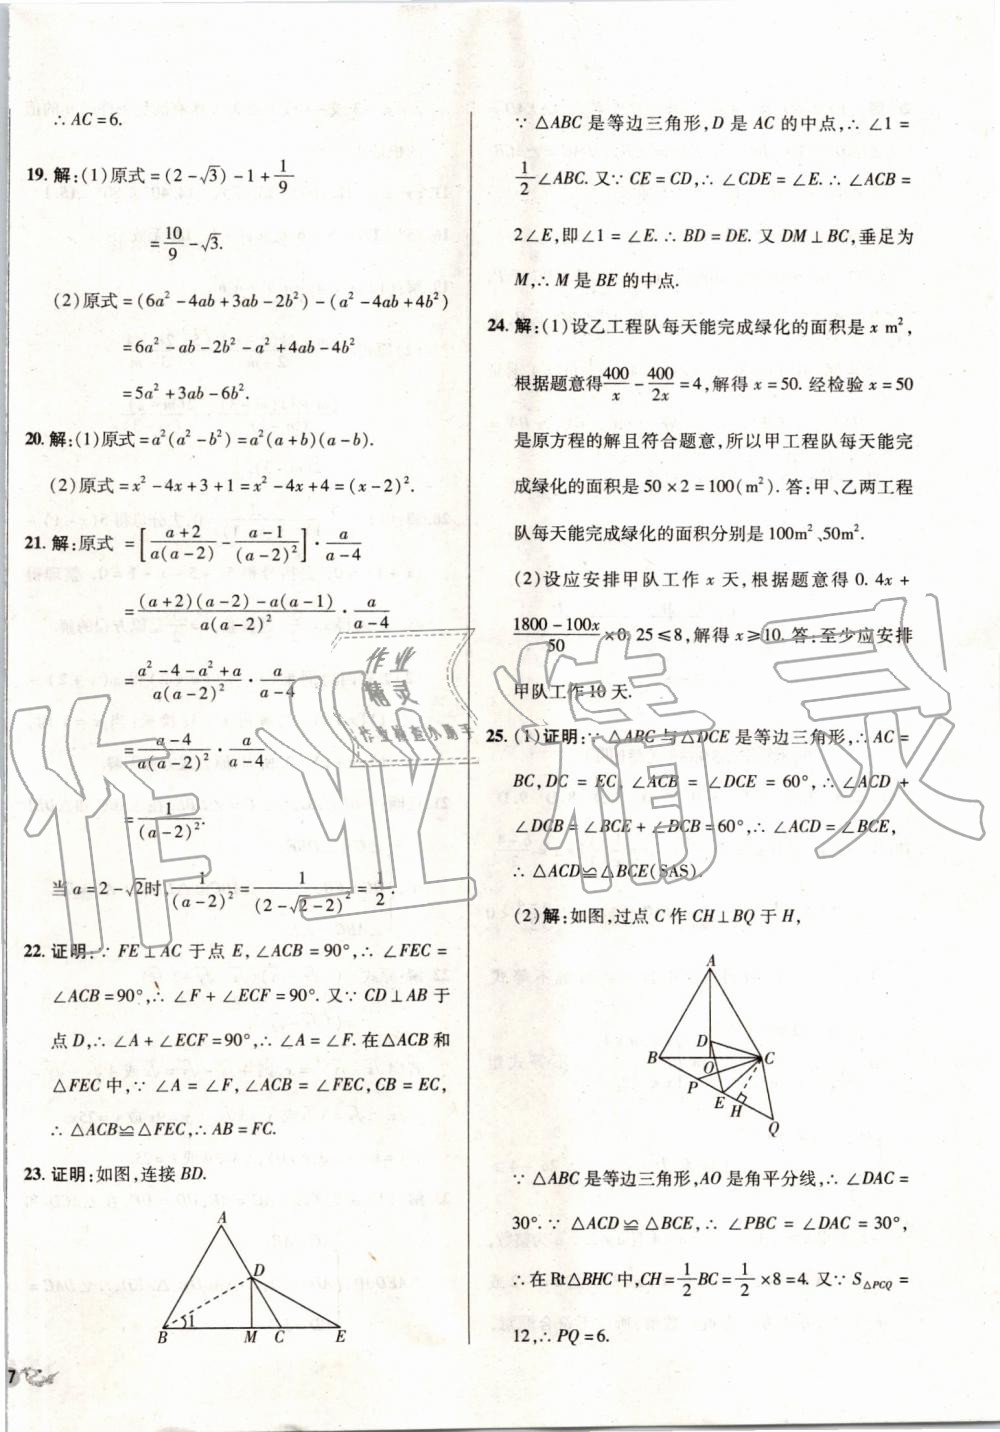 ∴ AC=6.
19. 解:(1)原式=(2-√3)-1+1/9
=10/9-√3.
(2)原式=(6a²-4ab+3ab-2b²)-(a²-4ab+4b²)
=6a²-ab-2b²-a²+4ab-4b²
=5a²+3ab-6b².
20. 解:(1)原式=a²(a²-b²)=a²(a+b)(a-b).
(2)原式=x²-4x+3+1=x²-4x+4=(x-2)².
21. 解:原式 =[(a+2)/(a(a-2))-(a-1)/((a-2)²)]·a/(a-4)
=((a+2)(a-2)-a(a-1))/(a(a-2)²)·a/(a-4)
=(a²-4-a²+a)/(a(a-2)²)·a/(a-4)
=(a-4)/(a(a-2)²)·a/(a-4)
=1/((a-2)²).
当 a=2-√2时,1/((a-2)²)=1/((2-√2-2)²)=1/2.
22. 证明:∵ FE⊥AC 于点 E,∠ACB=90°,∴ ∠FEC=
∠ACB=90°,∴ ∠F+∠ECF=90°. 又∵ CD⊥AB 于
点 D,∴ ∠A+∠ECF=90°,∴ ∠A=∠F. 在△ACB 和
△FEC 中,∵ ∠A=∠F,∠ACB=∠FEC,CB=EC,
∴ △ACB≌△FEC,∴ AB=FC.
23. 证明:如图,连接 BD.
A
D
1
B M C E
7
∵ △ABC 是等边三角形,D 是 AC 的中点,∴ ∠1=
1/2∠ABC. 又∵ CE=CD,∴ ∠CDE=∠E. ∴ ∠ACB=
2∠E,即∠1=∠E. ∴ BD=DE. 又 DM⊥BC,垂足为
M,∴ M 是 BE 的中点.
24. 解:(1)设乙工程队每天能完成绿化的面积是 x m²,
根据题意得400/x-400/2x=4,解得 x=50. 经检验 x=50
是原方程的解且符合题意,所以甲工程队每天能完
成绿化的面积是 50×2=100(m²). 答:甲、乙两工程
队每天能完成绿化的面积分别是 100m²、50m².
(2)设应安排甲队工作 x 天,根据题意得 0.4x+
(1800-100x)/50×0.25≤8,解得 x≥10. 答:至少应安排
甲队工作 10 天.
25. (1)证明:∵ △ABC 与△DCE 是等边三角形,∴ AC=
BC,DC=EC,∠ACB=∠DCE=60°,∴ ∠ACD+
∠DCB=∠BCE+∠DCB=60°,∴ ∠ACD=∠BCE,
∴ △ACD≌△BCE(SAS).
(2)解:如图,过点 C 作 CH⊥BQ 于 H,
A
D
B O C
P
E H
Q
∵ △ABC 是等边三角形,AO 是角平分线,∴ ∠DAC=
30°. ∵ △ACD≌△BCE,∴ ∠PBC=∠DAC=30°,
∴ 在 Rt△BHC 中,CH=1/2BC=1/2×8=4. 又∵ S△PCQ=
12,∴ PQ=6.
作业精灵
作业
精灵
作业检查小助手